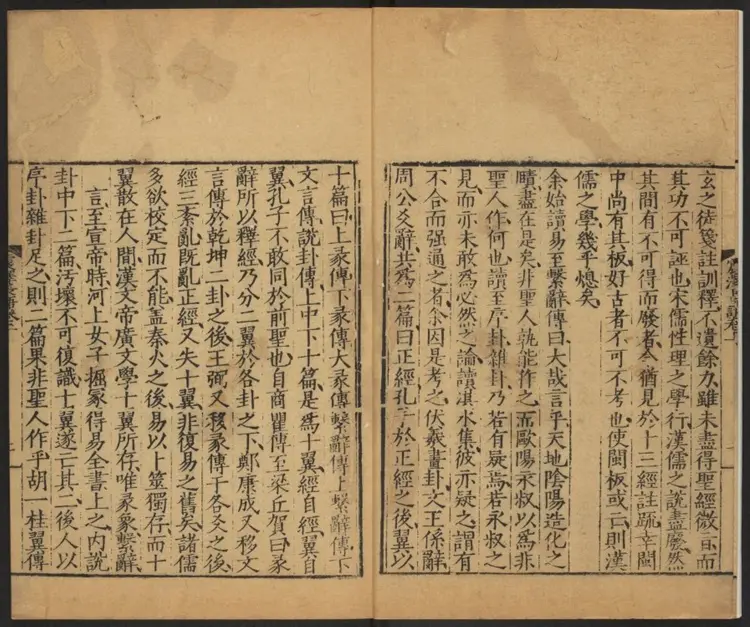 玄之徒箋註訓釋不遺餘力雖未盡得聖經微旨而
其功不可誣也宋儒性理之學行漢儒之說盡廢然
其間有不可得而廢者今猶見於十三經註疏幸閩
中尚有其板好古者不可不考也使閩板或亡則漢
儒之學幾乎熄矣
余始讀易至繫辭傳曰大哉言乎天地陰陽造化之
賾盡在是矣非聖人孰能作之而歐陽永叔以為非
聖人作何也讀至序卦雜卦乃若有疑焉若永叔之
見而亦未敢為必然之論讀淇水集彼亦疑之謂有
不合而强通之者余因是考之伏羲畫卦文王係辭
周公爻辭共為二篇曰正經孔子於正經之後翼以
十篇曰上彖傳下彖傳大彖傳繫辭傳上繫辭傳下
文言傳說卦傳上中下十篇是為十翼經自經翼自
翼孔子不敢同於前聖也自商瞿傳至梁丘賀曰彖
辭所以釋經乃分二翼於各卦之下鄭康成又移文
言傳於乾坤二卦之後王弼又移彖傳于各爻之後
經三紊亂既亂正經又失十翼非復易之舊矣諸儒
多欲校定而不能盖秦火之後易以卜筮獨存而十
翼散在人間漢文帝廣文學十翼所存唯彖象繫辭
言至宣帝時河上女子掘冢得易全書上之內說
卦中下二篇汚壞不可復識十翼遂亡其二後人以
序卦雜卦足之則二篇果非聖人作乎胡一桂翼傳